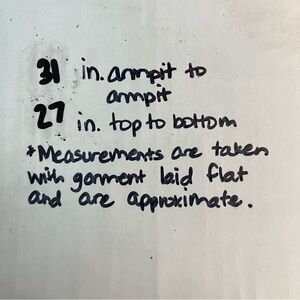 31 in. armpit to
armpit
27 in. top to bottom
*Measurements are taken
with garment laid flat
and are approximate.